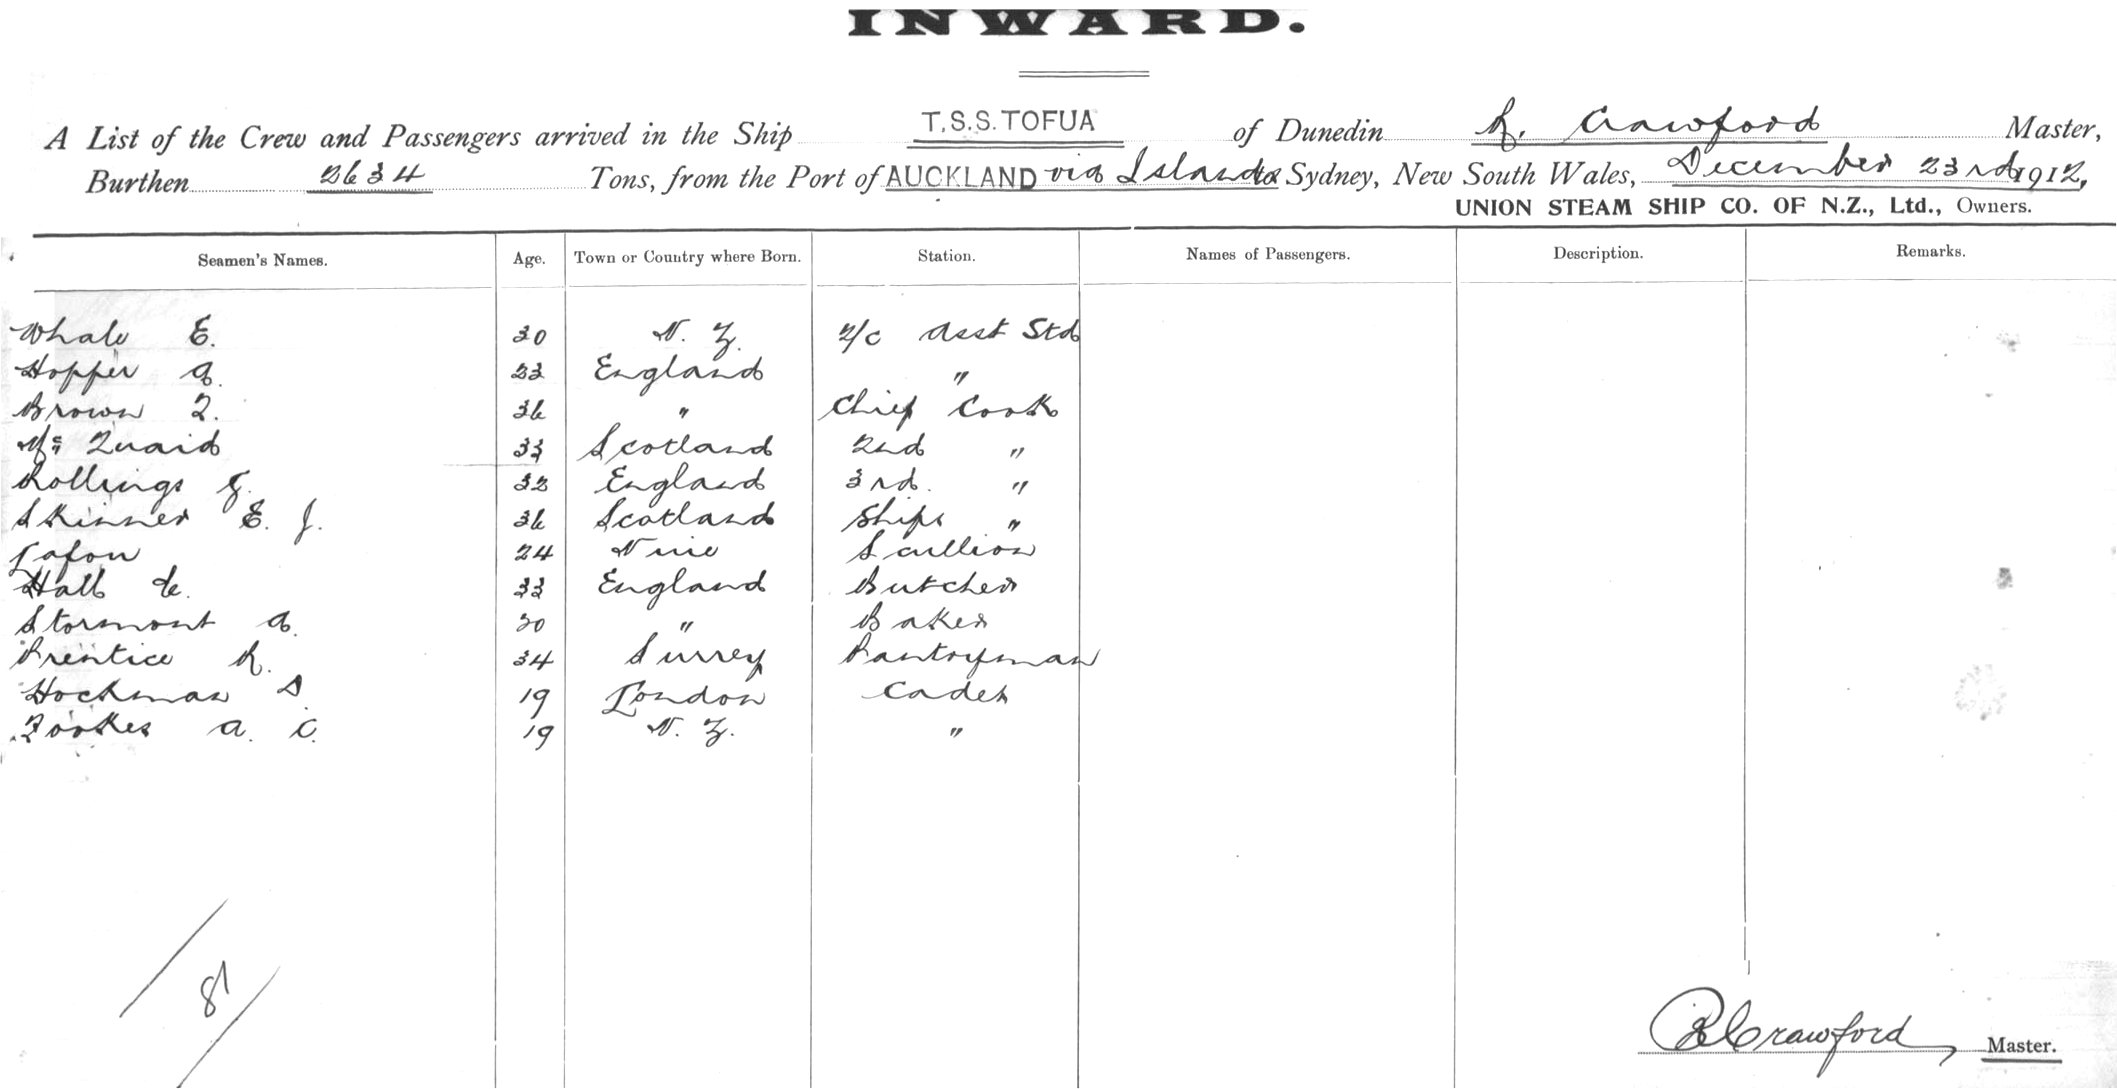 INWARD.
A List of the Crew and Passengers arrived in the Ship T.S.S. TOFUA of Dunedin R. Crawford Master,
Burthen 2634 Tons, from the Port of AUCKLAND via Islands to Sydney, New South Wales, December 23rd 1912,
UNION STEAM SHIP CO. OF N.Z., Ltd., Owners.
Seamen's Names. Age. Town or Country where Born. Station. Names of Passengers. Description. Remarks.
Whale E. 30 N. Z. 2/c Asst Std
Hopper A. 23 England "
Brown J. 36 " Chief Cook
Mc Quaid 33 Scotland 2nd "
Rollings G. 32 England 3rd. "
Skinner E. J. 36 Scotland Ships "
Lafou 24 Niue Scullion
Hall 33 England Butcher
Stormont A. 30 " Baker
Prentice R. 34 Surrey Pantryman
Hockman S 19 London Cadet
Fookes A. C. 19 N. Z. "
R Crawford Master.